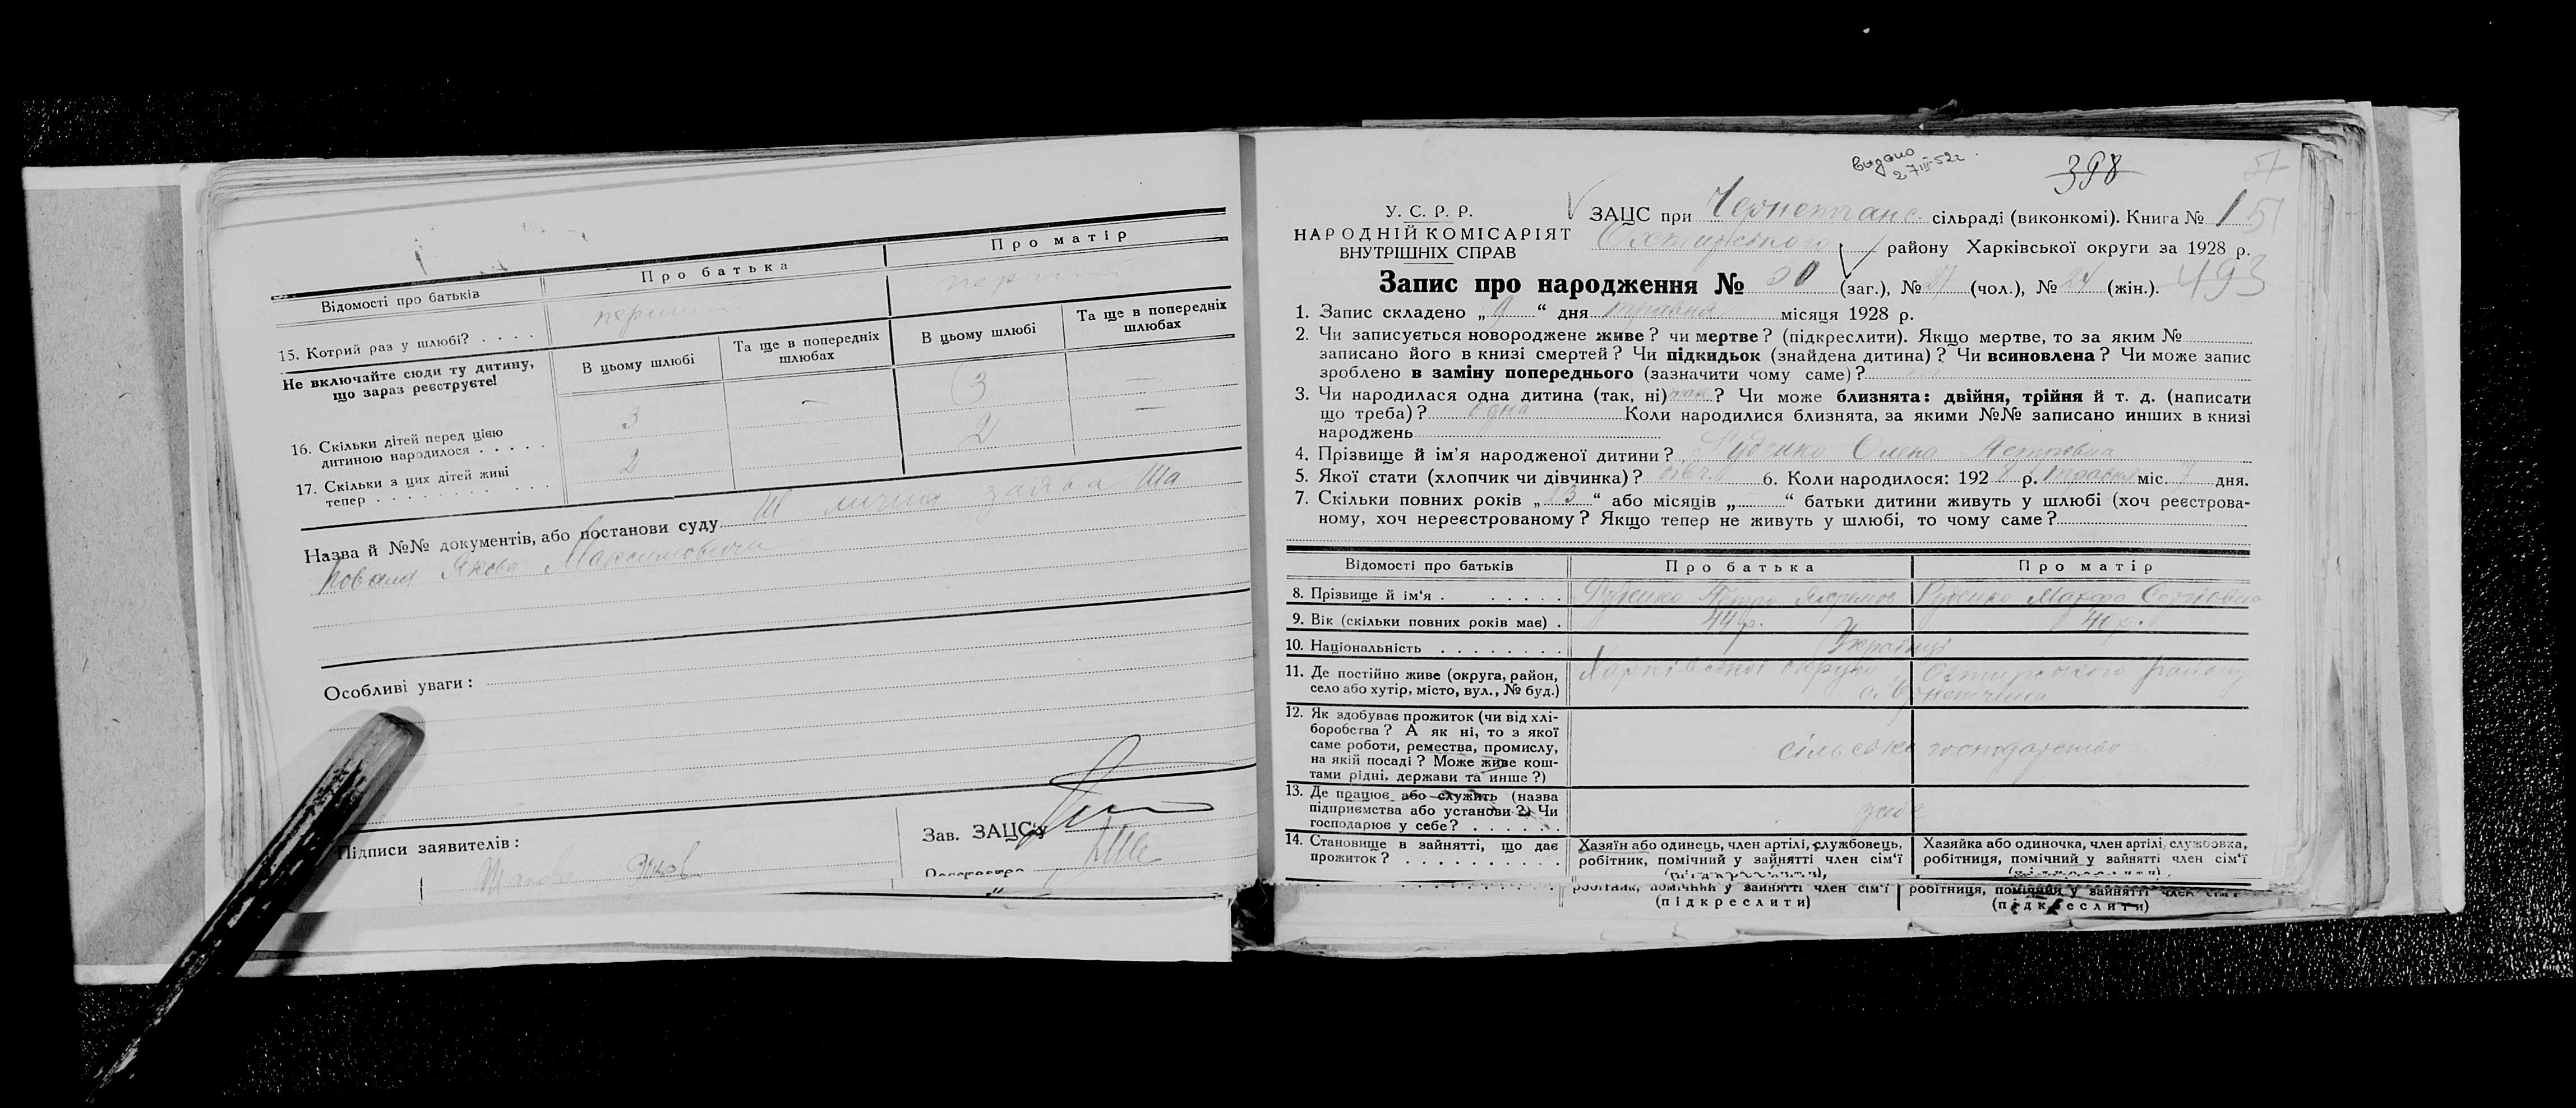 Відомості про батьків
Про батька
Про матір
15. Котрий раз у шлюбі? . . . .
перший
перший
Не включайте сюди ту дитину,
що зараз реєструєте!
В цьому шлюбі
Та ще в попередніх
шлюбах
В цьому шлюбі
Та ще в попередніх
шлюбах
16. Скільки дітей перед цією
дитиною народилося . . . . .
3
—
3
—
17. Скільки з цих дітей живі
тепер . . . . . . . . . . . .
2
2
—
Назва й №№ документів, або постанови суду
лична заява Ша
повала Якова Максимовича
Особливі уваги:
Підписи заявителів:
Зав. ЗАЦС'у
видано
27 III-52г.
398
51
У. С. Р. Р.
НАРОДНІЙ КОМІСАРІЯТ
ВНУТРІШНІХ СПРАВ
ЗАЦС при Чернетчанс. сільраді (виконкомі). Книга № 1
51
Охтирського району Харківської округи за 1928 р.
Запис про народження № (заг.), № (чол.), № 24 (жін.).
493
1. Запис складено „ 9 “ дня травня місяця 1928 р.
2. Чи записується новороджене живе? чи мертве? (підкреслити). Якщо мертве, то за яким №
записано його в книзі смертей? Чи підкидьок (знайдена дитина)? Чи всиновлена? Чи може запис
зроблено в заміну попереднього (зазначити чому саме)?
3. Чи народилася одна дитина (так, ні) так ? Чи може близнята: двійня, трійня й т. д. (написати
що треба)? одна Коли народилися близнята, за якими №№ записано инших в книзі
народжень
4. Прізвище й ім'я народженої дитини? Руденко Олена Петровна
5. Якої стати (хлопчик чи дівчинка)? дівч. 6. Коли народилося: 192 8 р. травня міс. 7 дня.
7. Скільки повних років „ 13 “ або місяців „ “ батьки дитини живуть у шлюбі (хоч реєстрова-
ному, хоч нереєстрованому? Якщо тепер не живуть у шлюбі, то чому саме?
Відомості про батьків
Про батька
Про матір
8. Прізвище й ім'я . . . . . .
Руденко Петро
Руденко Марфа Сергіовна
9. Вік (скільки повних років має) .
44 р.
40 р.
10. Національність . . . . . . . .
Українці
11. Де постійно живе (округа, район,
село або хутір, місто, вул., № буд.)
Харківської округи Охтирського району
с. Чернетчина
12. Як здобуває прожиток (чи від хлі-
боробства? А як ні, то з якої
саме роботи, ремества, промислу,
на якій посаді? Може живе кош-
тами рідні, держави та инше?)
сільське господарство
13. Де працює або служить (назва
підприємства або установи?) Чи
господарює у себе? . . . . . .
у себе
14. Становище в зайнятті, що дає
прожиток? . . . . . . . . . .
Хазяїн або одинець, член артілі, службовець,
робітник, помічний у зайнятті член сім'ї
(підкреслити),
Хазяйка або одиночка, член артілі, службовка,
робітниця, помічний у зайнятті член сім'ї
(підкреслити),
робітник, помічний у зайнятті член сім'ї
(підкреслити)
робітниця, помічний у зайнятті член сім'ї
(підкреслити)